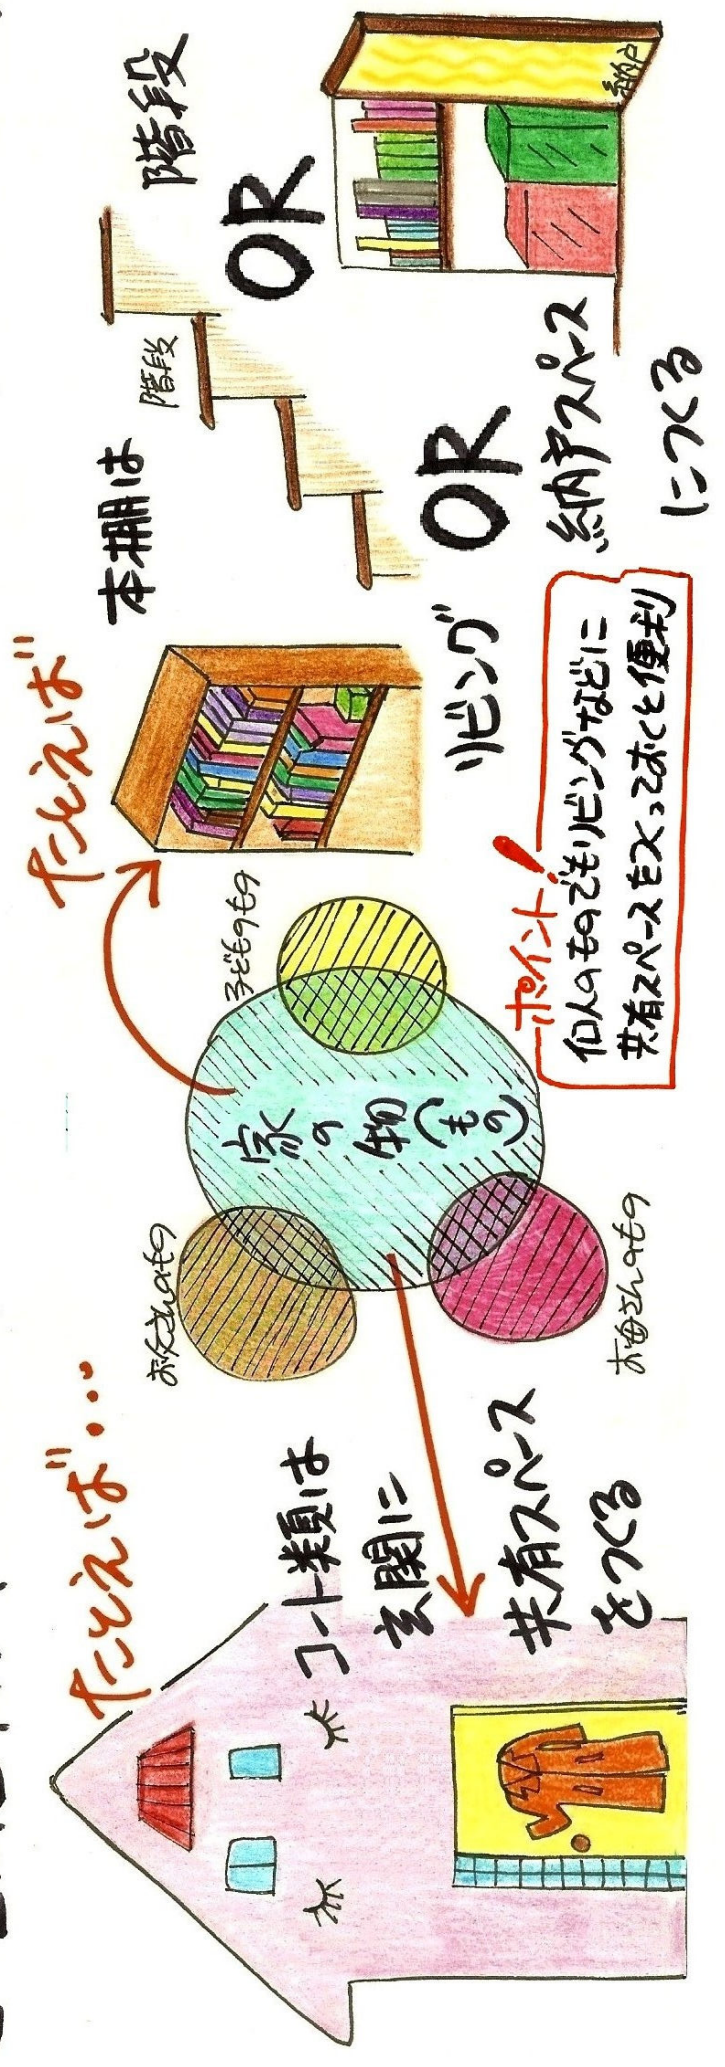 たとえば…
コート類は
玄関に
共有スペース
をつくる
お父さんのもの
お母さんのもの
子どものもの
家の物(もの)
たとえば
本棚は
リビング
OR
階段
階段
OR
納戸スペース
につくる
納戸
ポイント!
個人のものでもリビングなどに
共有スペースをつくっておくと便利